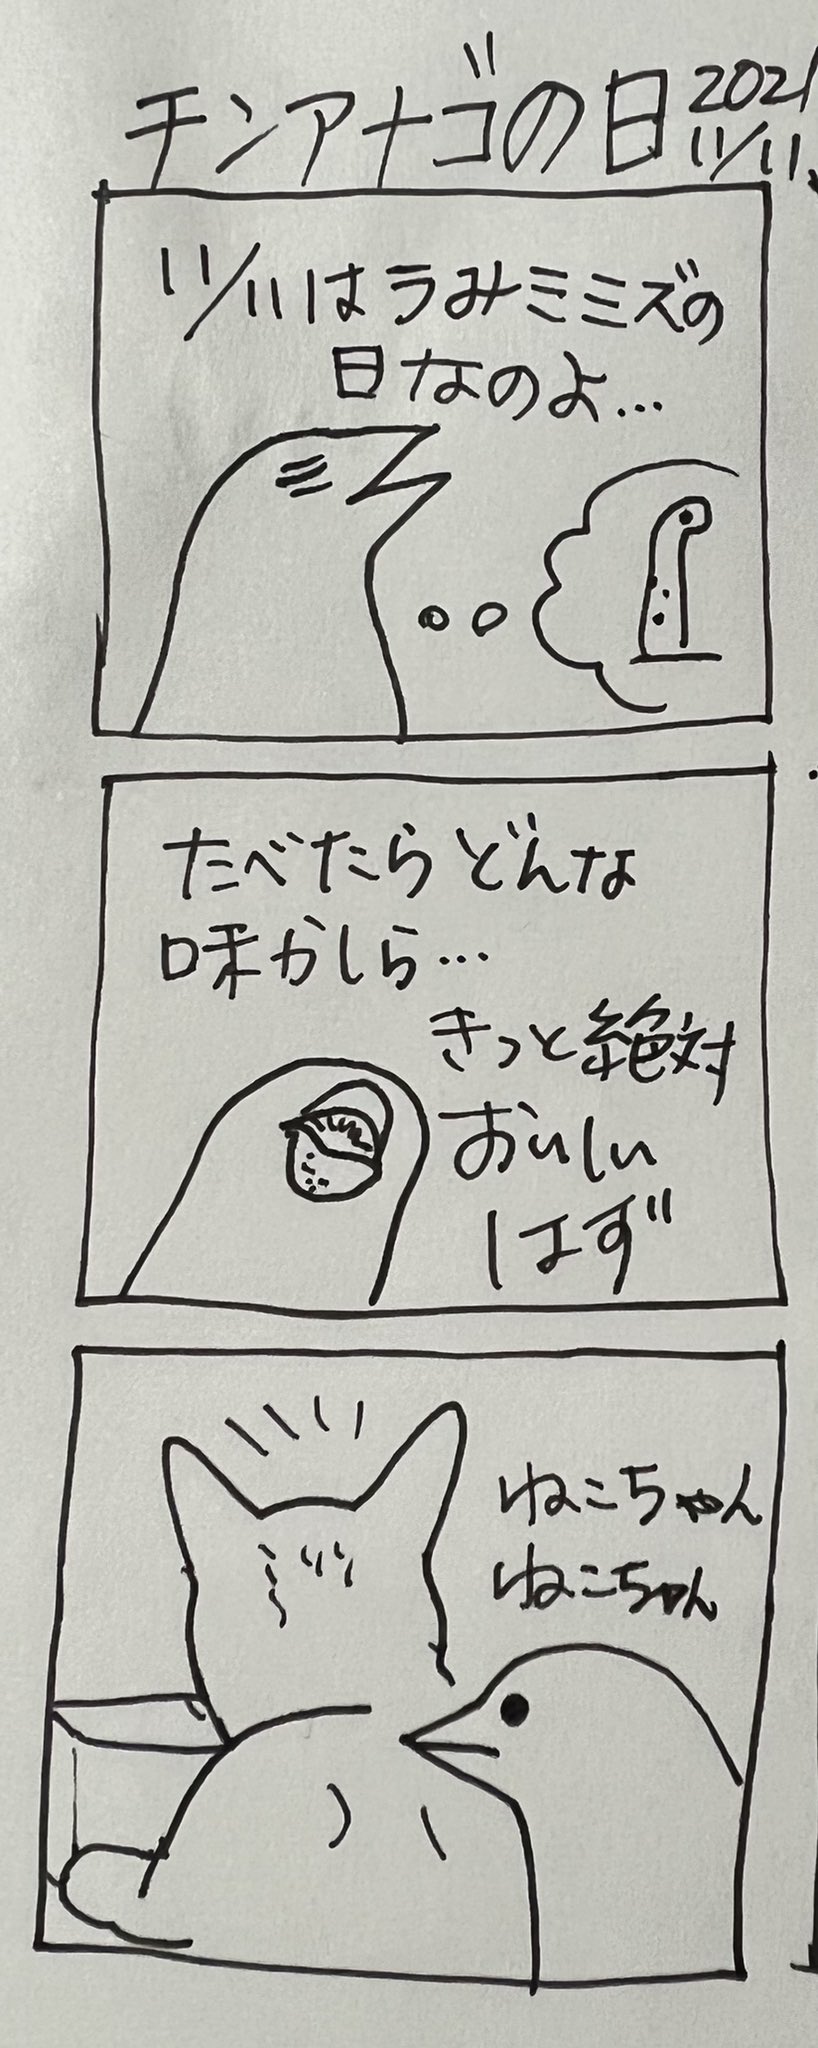 チンアナゴの日 2021
11/11、
11/11はうみミミズの
日なのよ…
たべたらどんな
味かしら…
きっと絶対
おいしい
はず
ねこちゃん
ねこちゃん